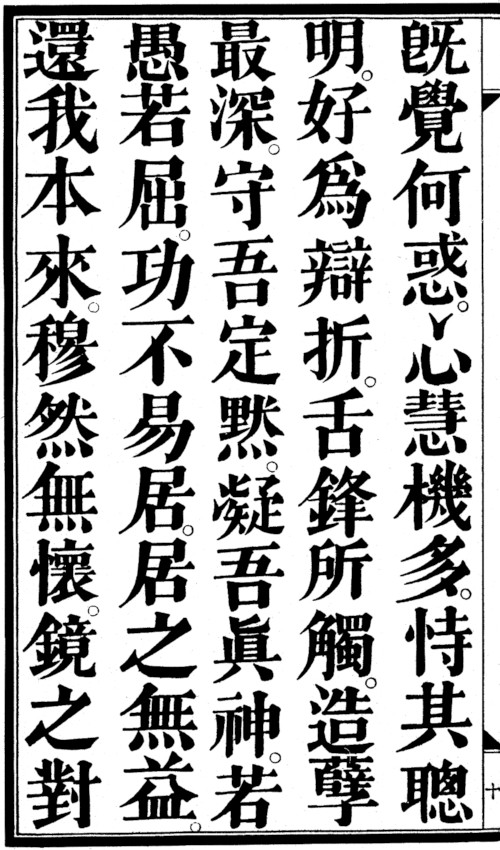 旣覺何惑。心慧機多。恃其聰
明。好爲辯折。舌鋒所觸。造孽
最深。守吾定黙。凝吾眞神。若
愚若屈。功不易居。居之無益。
還我本來。穆然無懷。鏡之對
十